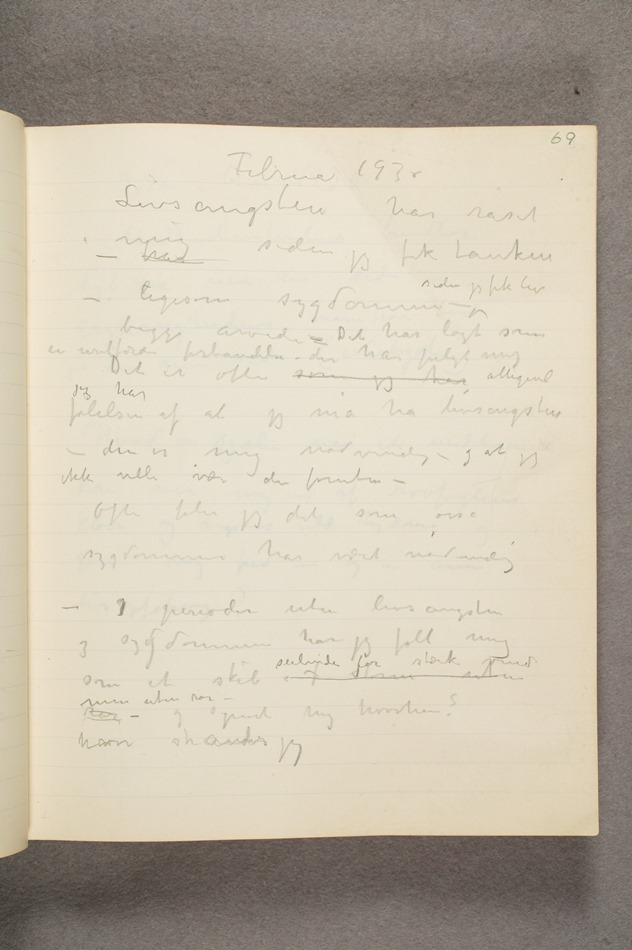 69
Februa 193
Livsangsten har raset
mig siden jeg fik tanken
siden jeg fik lys
– ligesom sygdommen –
begge arvede – Det har lagt som
en forbandelse – der har fulgt mig
Det er ofte som jeg har alligevel
jeg har
følelsen af at jeg må ha livsangsten
– den er mig nødvendig – og at jeg
ikke ville være den foruten –
Ofte føler jeg det som osse
sygdommen har vært nødvendig
– I perioder uten livsangsten
og sygdommen har jeg følt mig
som et skib seilende for stærk vind
men uten ror –
og spurt mig hvorhen?
hvor strander jeg